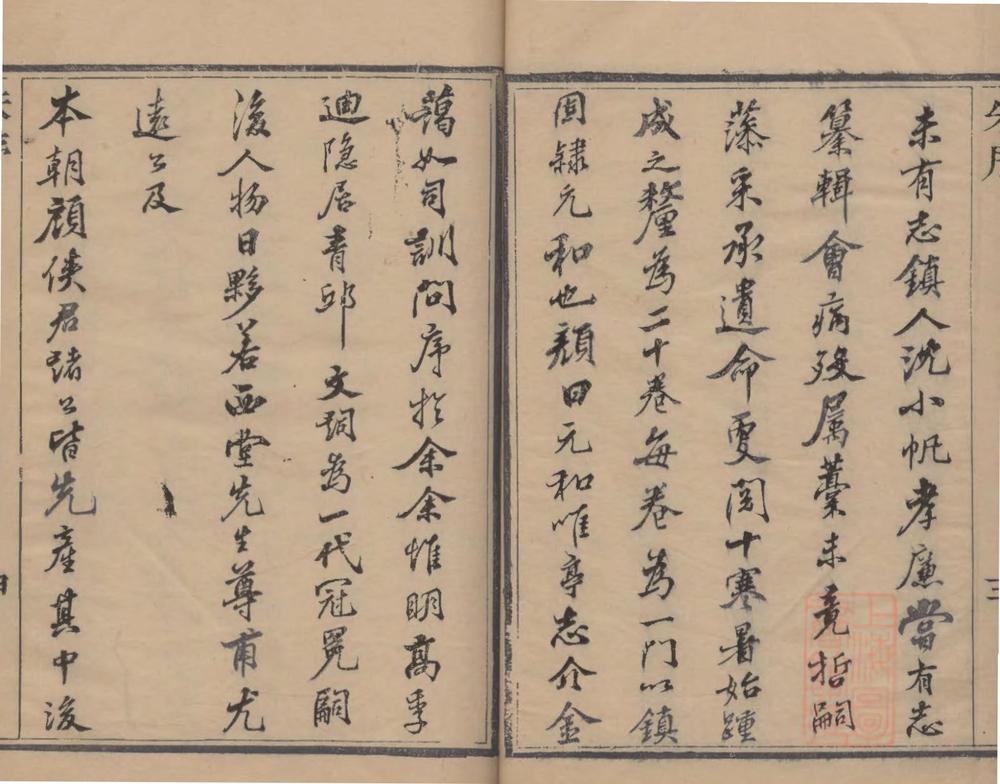 未有志鎮人沈小帆孝廉嘗有志
纂輯會病歿属藳未竟哲嗣
藻采承遺命更閱十寒暑始踵
成之釐為二十卷每卷為一門以鎮
固隸元和也顏曰元和唯亭志介金
藹如司訓問序於余余惟明高季
迪隐居青邱文詞為一代冠冕嗣
後人物日夥若西堂先生尊甫尤
遠公及
本朝顧俠君諸公皆先產其中後